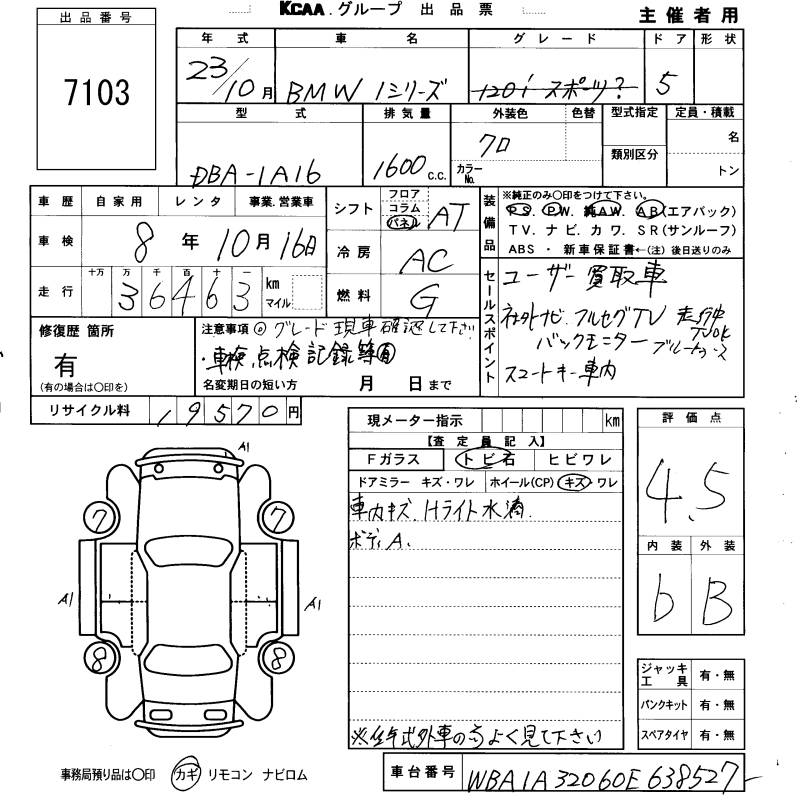 KCAA.グループ 出品票
主催者用
出品番号
7103
年式 車名 グレード ドア 形状
23/10月 BMW 1シリーズ 120i スポーツ? 5
型式 排気量 外装色 色替 型式指定 定員・積載
DBA-1A16 1600c.c. クロ カラーNo. 類別区分 名
トン
車歴 自家用 レンタ 事業.営業車
車検 8年10月16日
走行 十万 万 千 百 十 一
36463 km マイル
シフト フロア コラム パネル AT
冷房 AC
燃料 G
装備品
※純正のみ〇印をつけて下さい。
PS. PW. 純AW. AB(エアバック)
TV. ナビ. カワ. SR(サンルーフ)
ABS ・ 新車保証書←(注) 後日送りのみ
セールスポイント
ユーザー買取車
社外ナビ フルセグTV 走行中TVOK
バックモニター ブルートゥース
スマートキー車内
修復歴 箇所
有
(有の場合は〇印を)
注意事項 ◎グレード現車確認して下さい
・車検点検記録簿有
名変期日の短い方 月 日まで
リサイクル料 19570円
現メーター指示 km
【査定員記入】
Fガラス トビ石 ヒビワレ
ドアミラー キズ・ワレ ホイール(CP) キズ・ワレ
車内キズ. Hライト水滴.
ボディA.
※低年式外車の為よく見て下さい
評価点
4.5
内装 外装
b B
A1
7 7
A1 A1
8 8
ジャッキ工具 有・無
パンクキット 有・無
スペアタイヤ 有・無
事務局預り品は〇印 カギ リモコン ナビロム
車台番号 WBA1A32060E638527